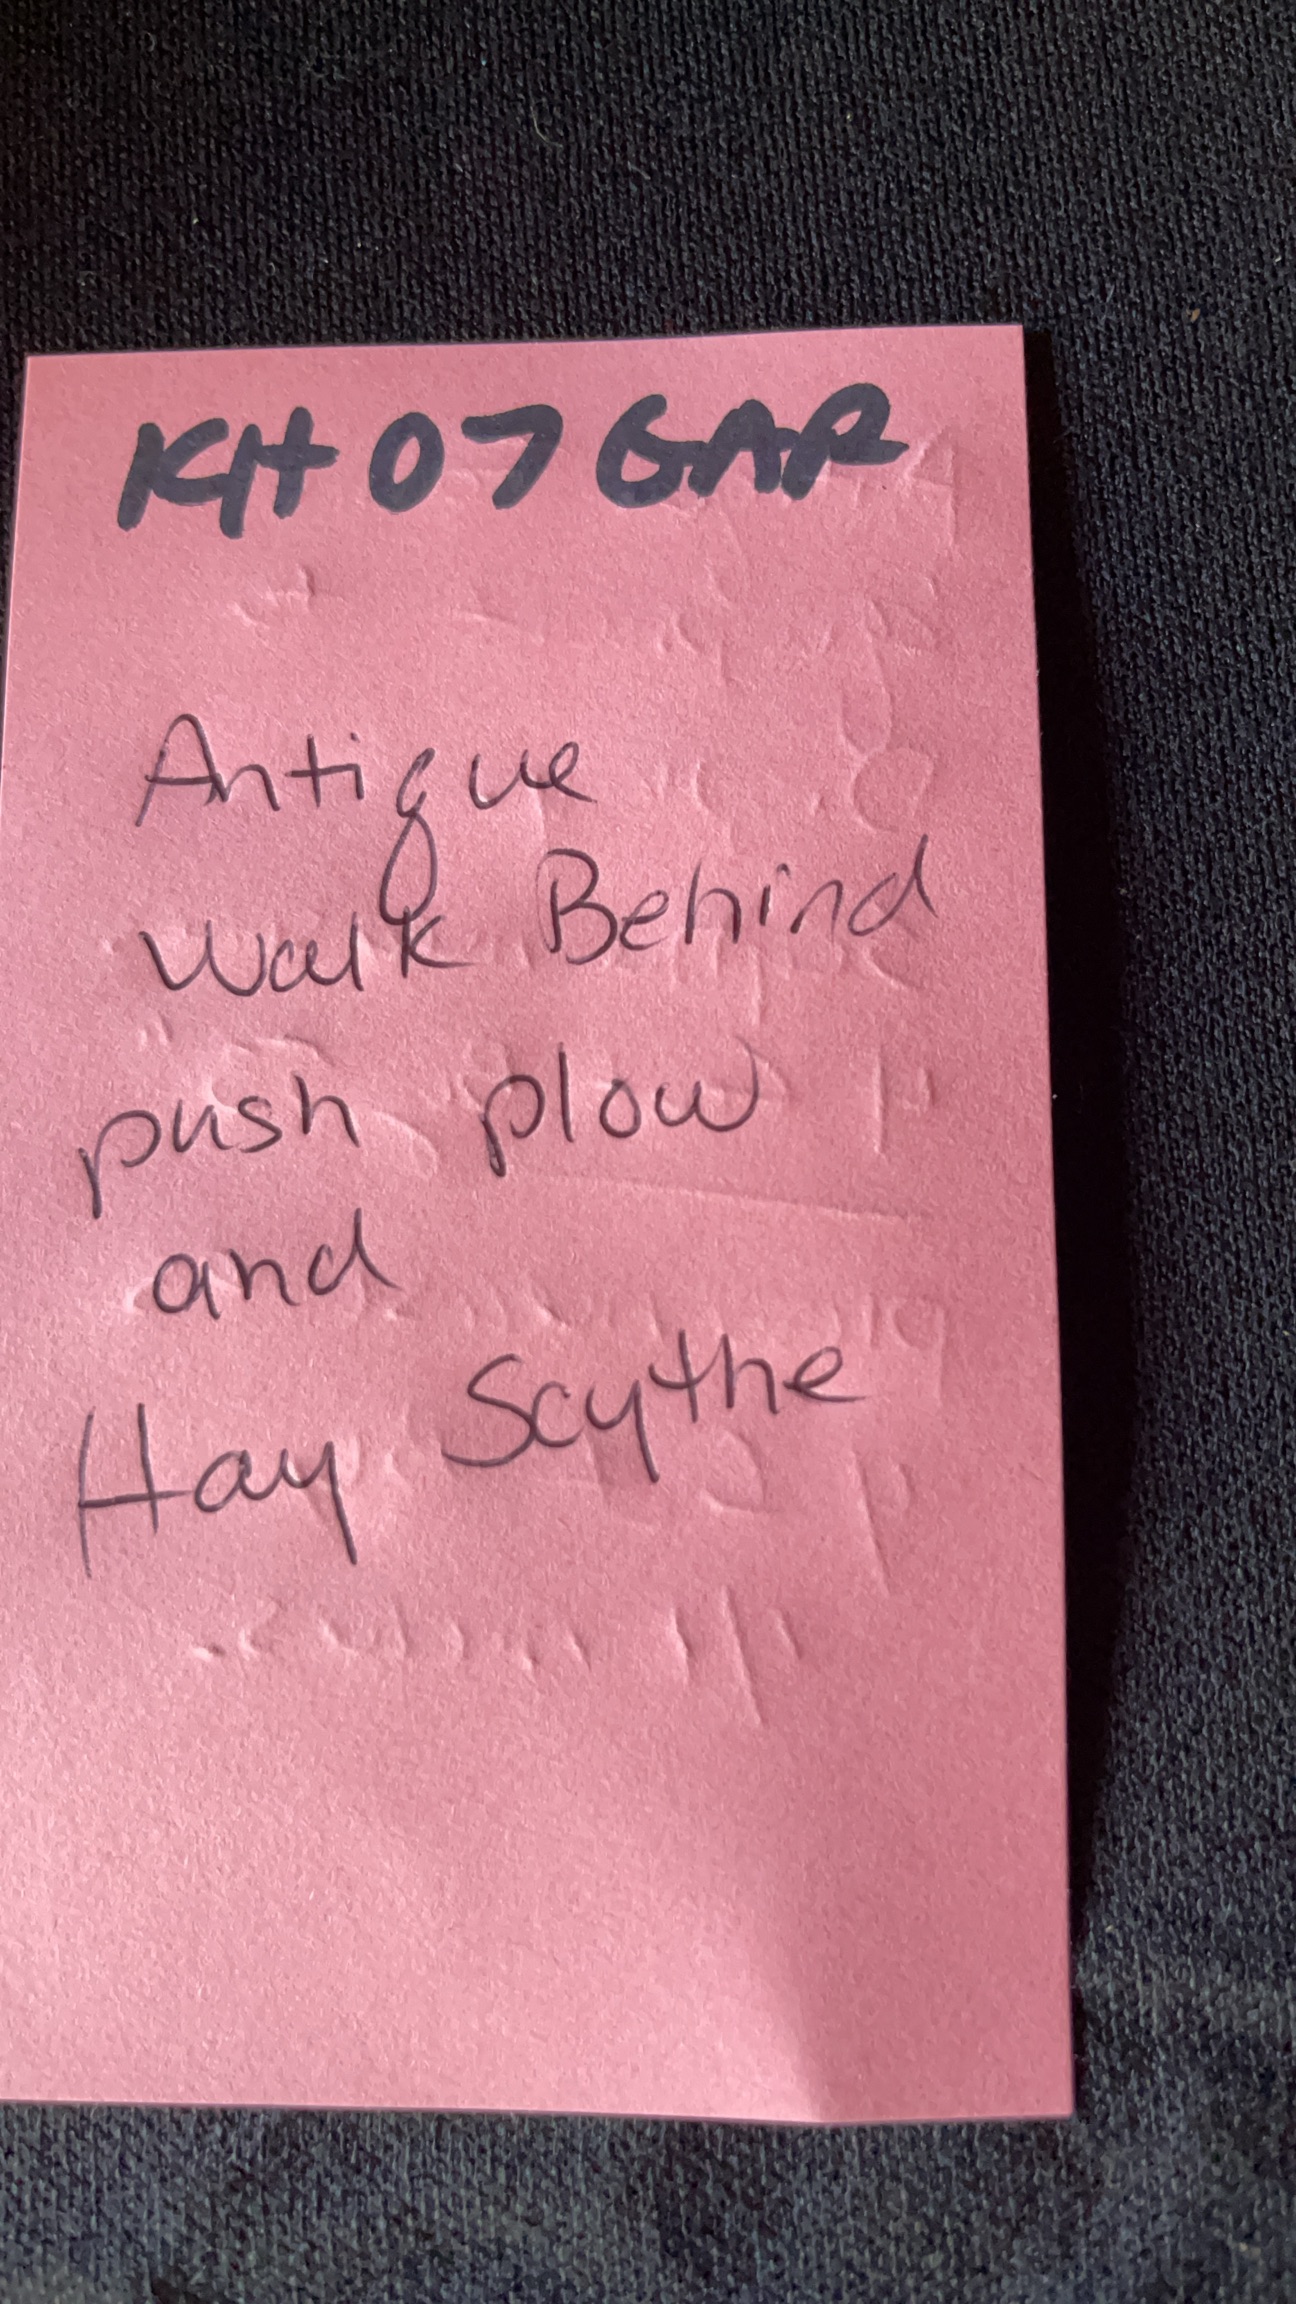 KH 07 GAR
Antique
Walk Behind
push plow
and
Hay Scythe